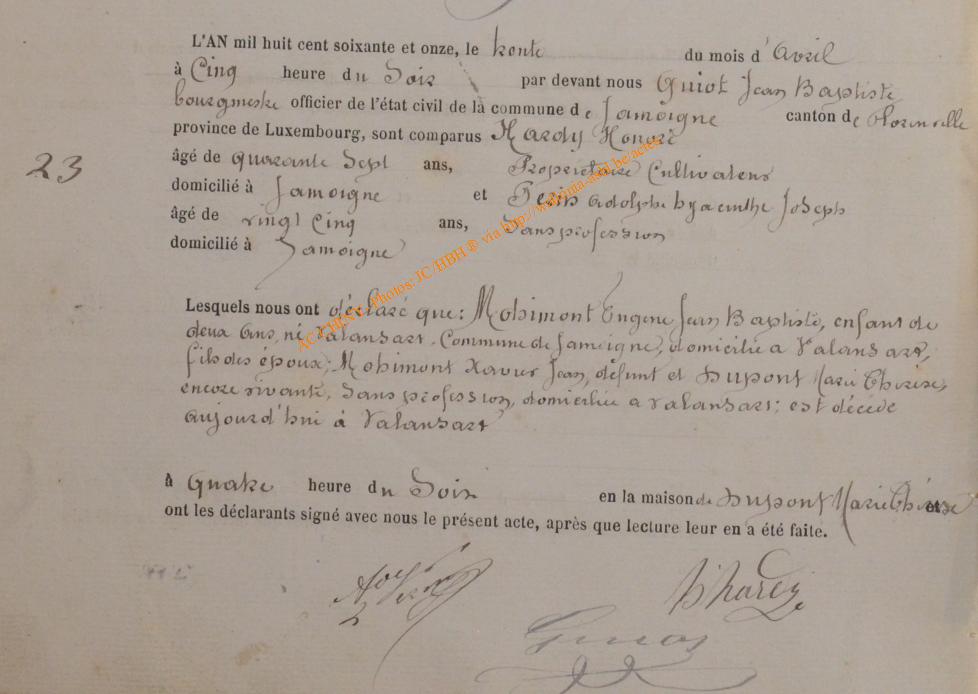 L'AN mil huit cent soixante et onze, le trente du mois d' Avril
à Cinq heure du Soir par devant nous Guiot Jean Baptiste
bourgmestre officier de l'état civil de la commune de Jamoigne canton de Florenville
province de Luxembourg, sont comparus Hardy Honoré
23
âgé de quarante Sept ans, Propriétaire Cultivateur
domicilié à Jamoigne et Perin Adolphe hyacinthe Joseph
âgé de vingt Cinq ans, Sans profession
domicilié à Jamoigne
Lesquels nous ont déclaré que: Mohimont Eugene Jean Baptiste, enfant de
deux ans, né Valansart, Commune de Jamoigne, domicilié a Valansart,
fils des époux; Mohimont Xavier Jean, défunt et Dupont Marie Thérèse,
encore vivante, Sans profession, domiciliée a Valansart; est décédé
aujourd'hui à Valansart
à Quatre heure du Soir en la maison de Dupont Marie Thérèse et
ont les déclarants signé avec nous le présent acte, après que lecture leur en a été faite.
H hardy
Guiot